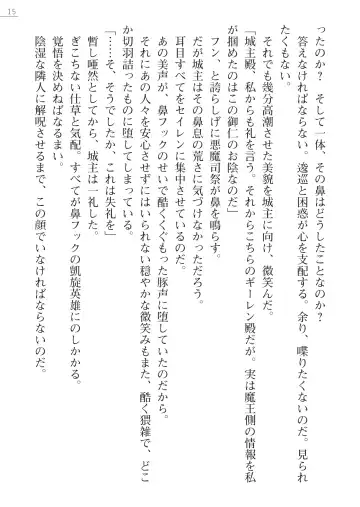 15
ったのか？　そして一体、その鼻はどうしたことなのか？
答えなければならない。逡巡と困惑が心を支配する。余り、喋りたくないのだ。見られ
たくもない。
それでも幾分高潮させた美貌を城主に向け、微笑んだ。
「城主殿、私からも礼を言う。それからこちらのギーレン殿だが、実は魔王側の情報を私
が掴めたのはこの御仁のお陰なのだ」
フン、と誇らしげに悪魔司祭が鼻を鳴らす。
だが城主はその鼻息の荒さに気づけなかっただろう。
耳目すべてをセイレンに集中させているのだ。
あの美声が、鼻フックのせいで酷くくぐもった豚声に堕していたのだから。
それにあの人々を安心させずにはいられない穏やかな微笑みもまた、酷く猥雑で、どこ
か切羽詰ったものに堕してしまっている。
「……そ、そうでしたか、これは失礼を」
暫し唖然としてから、城主は一礼した。
ぎこちない仕草と気配。すべてが鼻フックの凱旋英雄にのしかかる。
覚悟を決めねばなるまい。
陰湿な隣人に解呪させるまで、この顔でいなければならないのだ。